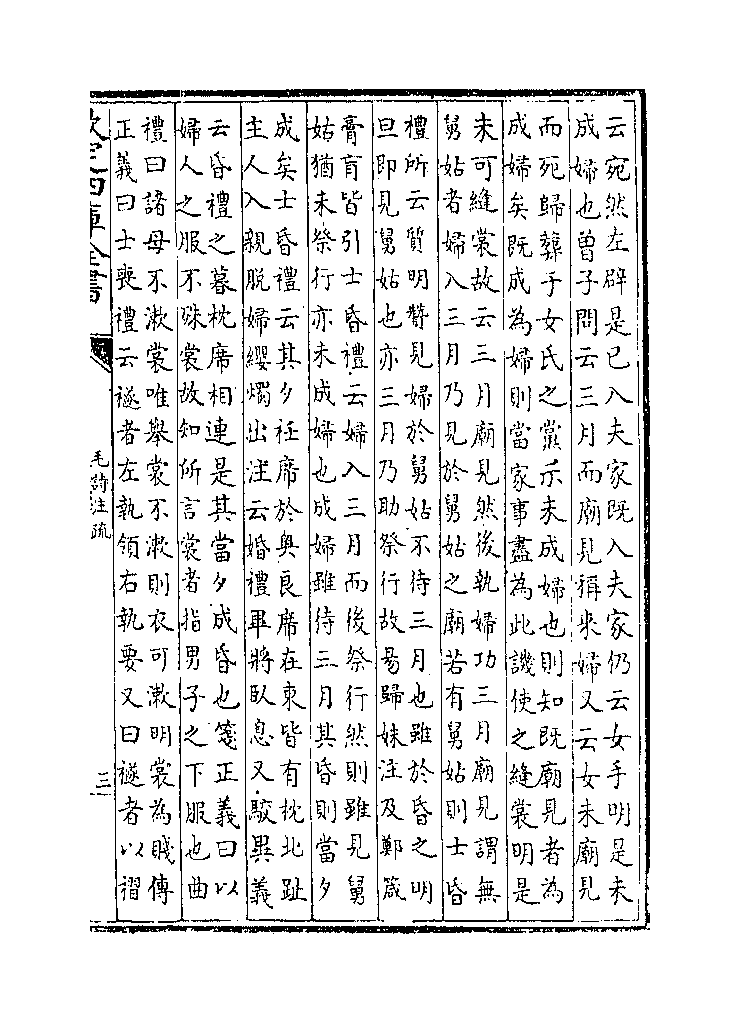 云宛然左辟是已入夫家既入夫家仍云女手明是未
成婦也曾子問云三月而廟見稱来婦又云女未廟見
而死歸葬于女氏之黨示未成婦也則知既廟見者為
成婦矣既成為婦則當家事盡為此譏使之縫裳明是
未可縫裳故云三月廟見然後執婦功三月廟見謂無
舅姑者婦入三月乃見於舅姑之廟若有舅姑則士昏
禮所云質明贊見婦於舅姑不待三月也雖於昏之明
旦即見舅姑也亦三月乃助祭行故易歸妹注及鄭箴
膏肓皆引士昏禮云婦入三月而後祭行然則雖見舅
姑猶未祭行亦未成婦也成婦雖待三月其昏則當夕
成矣士昏禮云其夕衽席於奥良席在東皆有枕北趾
主人入親脱婦纓燭出注云婚禮畢將臥息又駮異義
云昏禮之暮枕席相連是其當夕成昏也箋正義曰以
婦人之服不殊裳故知所言裳者指男子之下服也曲
禮曰諸母不漱裳唯舉裳不漱則衣可漱明裳為賤傳
正義曰士喪禮云襚者左執領右執要又曰襚者以褶
欽定四庫全書
毛詩注疏
三